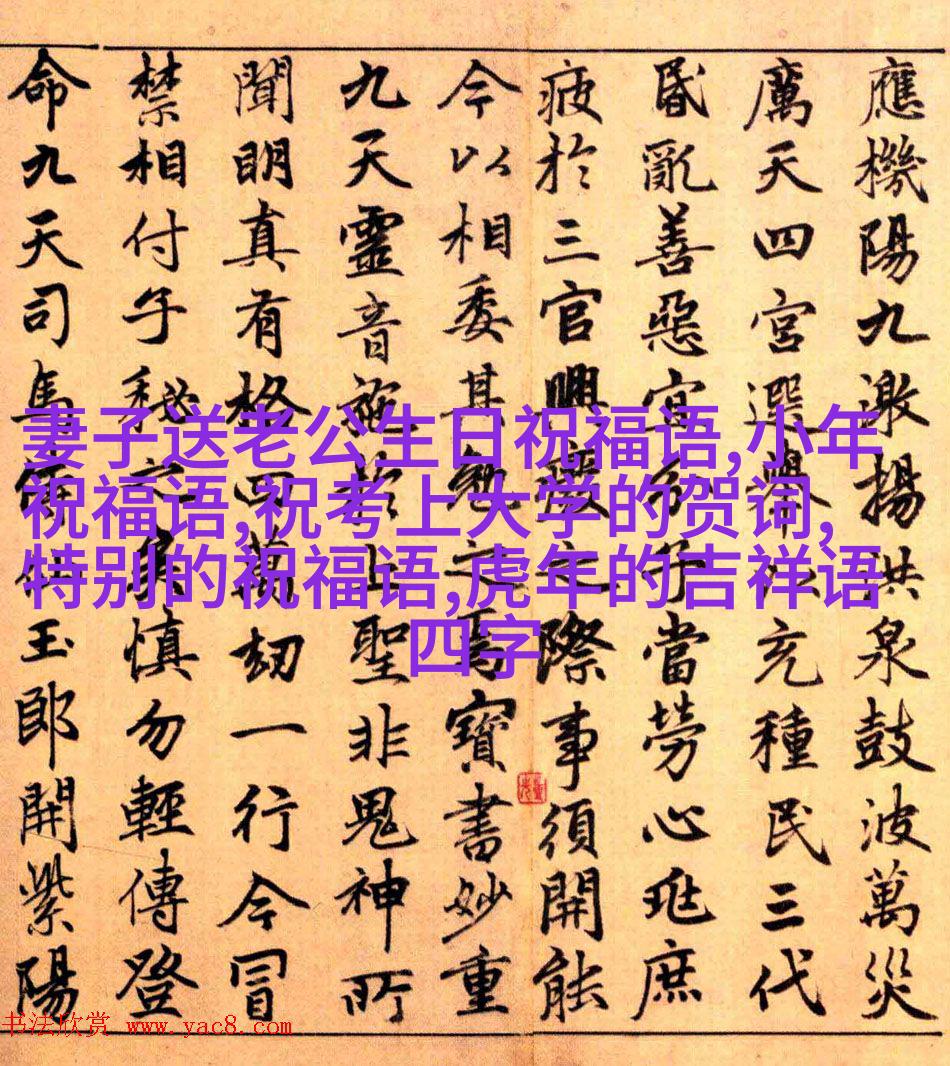 應機陽九激揚洪泉鼓波萬災
厲天四宮選舉以充種民三代
昏亂善惡宜分子當勞心甿庶
疲於三官興廢之際事須開能
今以相委其勉之焉寶書妙重
九天靈音施於上聖非鬼神所
聞明真有格四萬劫一行今冒
禁相付子秘之慎勿輕傳登
命九天司馬侍仙玉郎開紫陽
妻子送老公生日祝福语,小年
祝福语,祝考上大学的贺词,
特别的祝福语,虎年的吉祥语
四字
书法欣赏 www.yac8.com